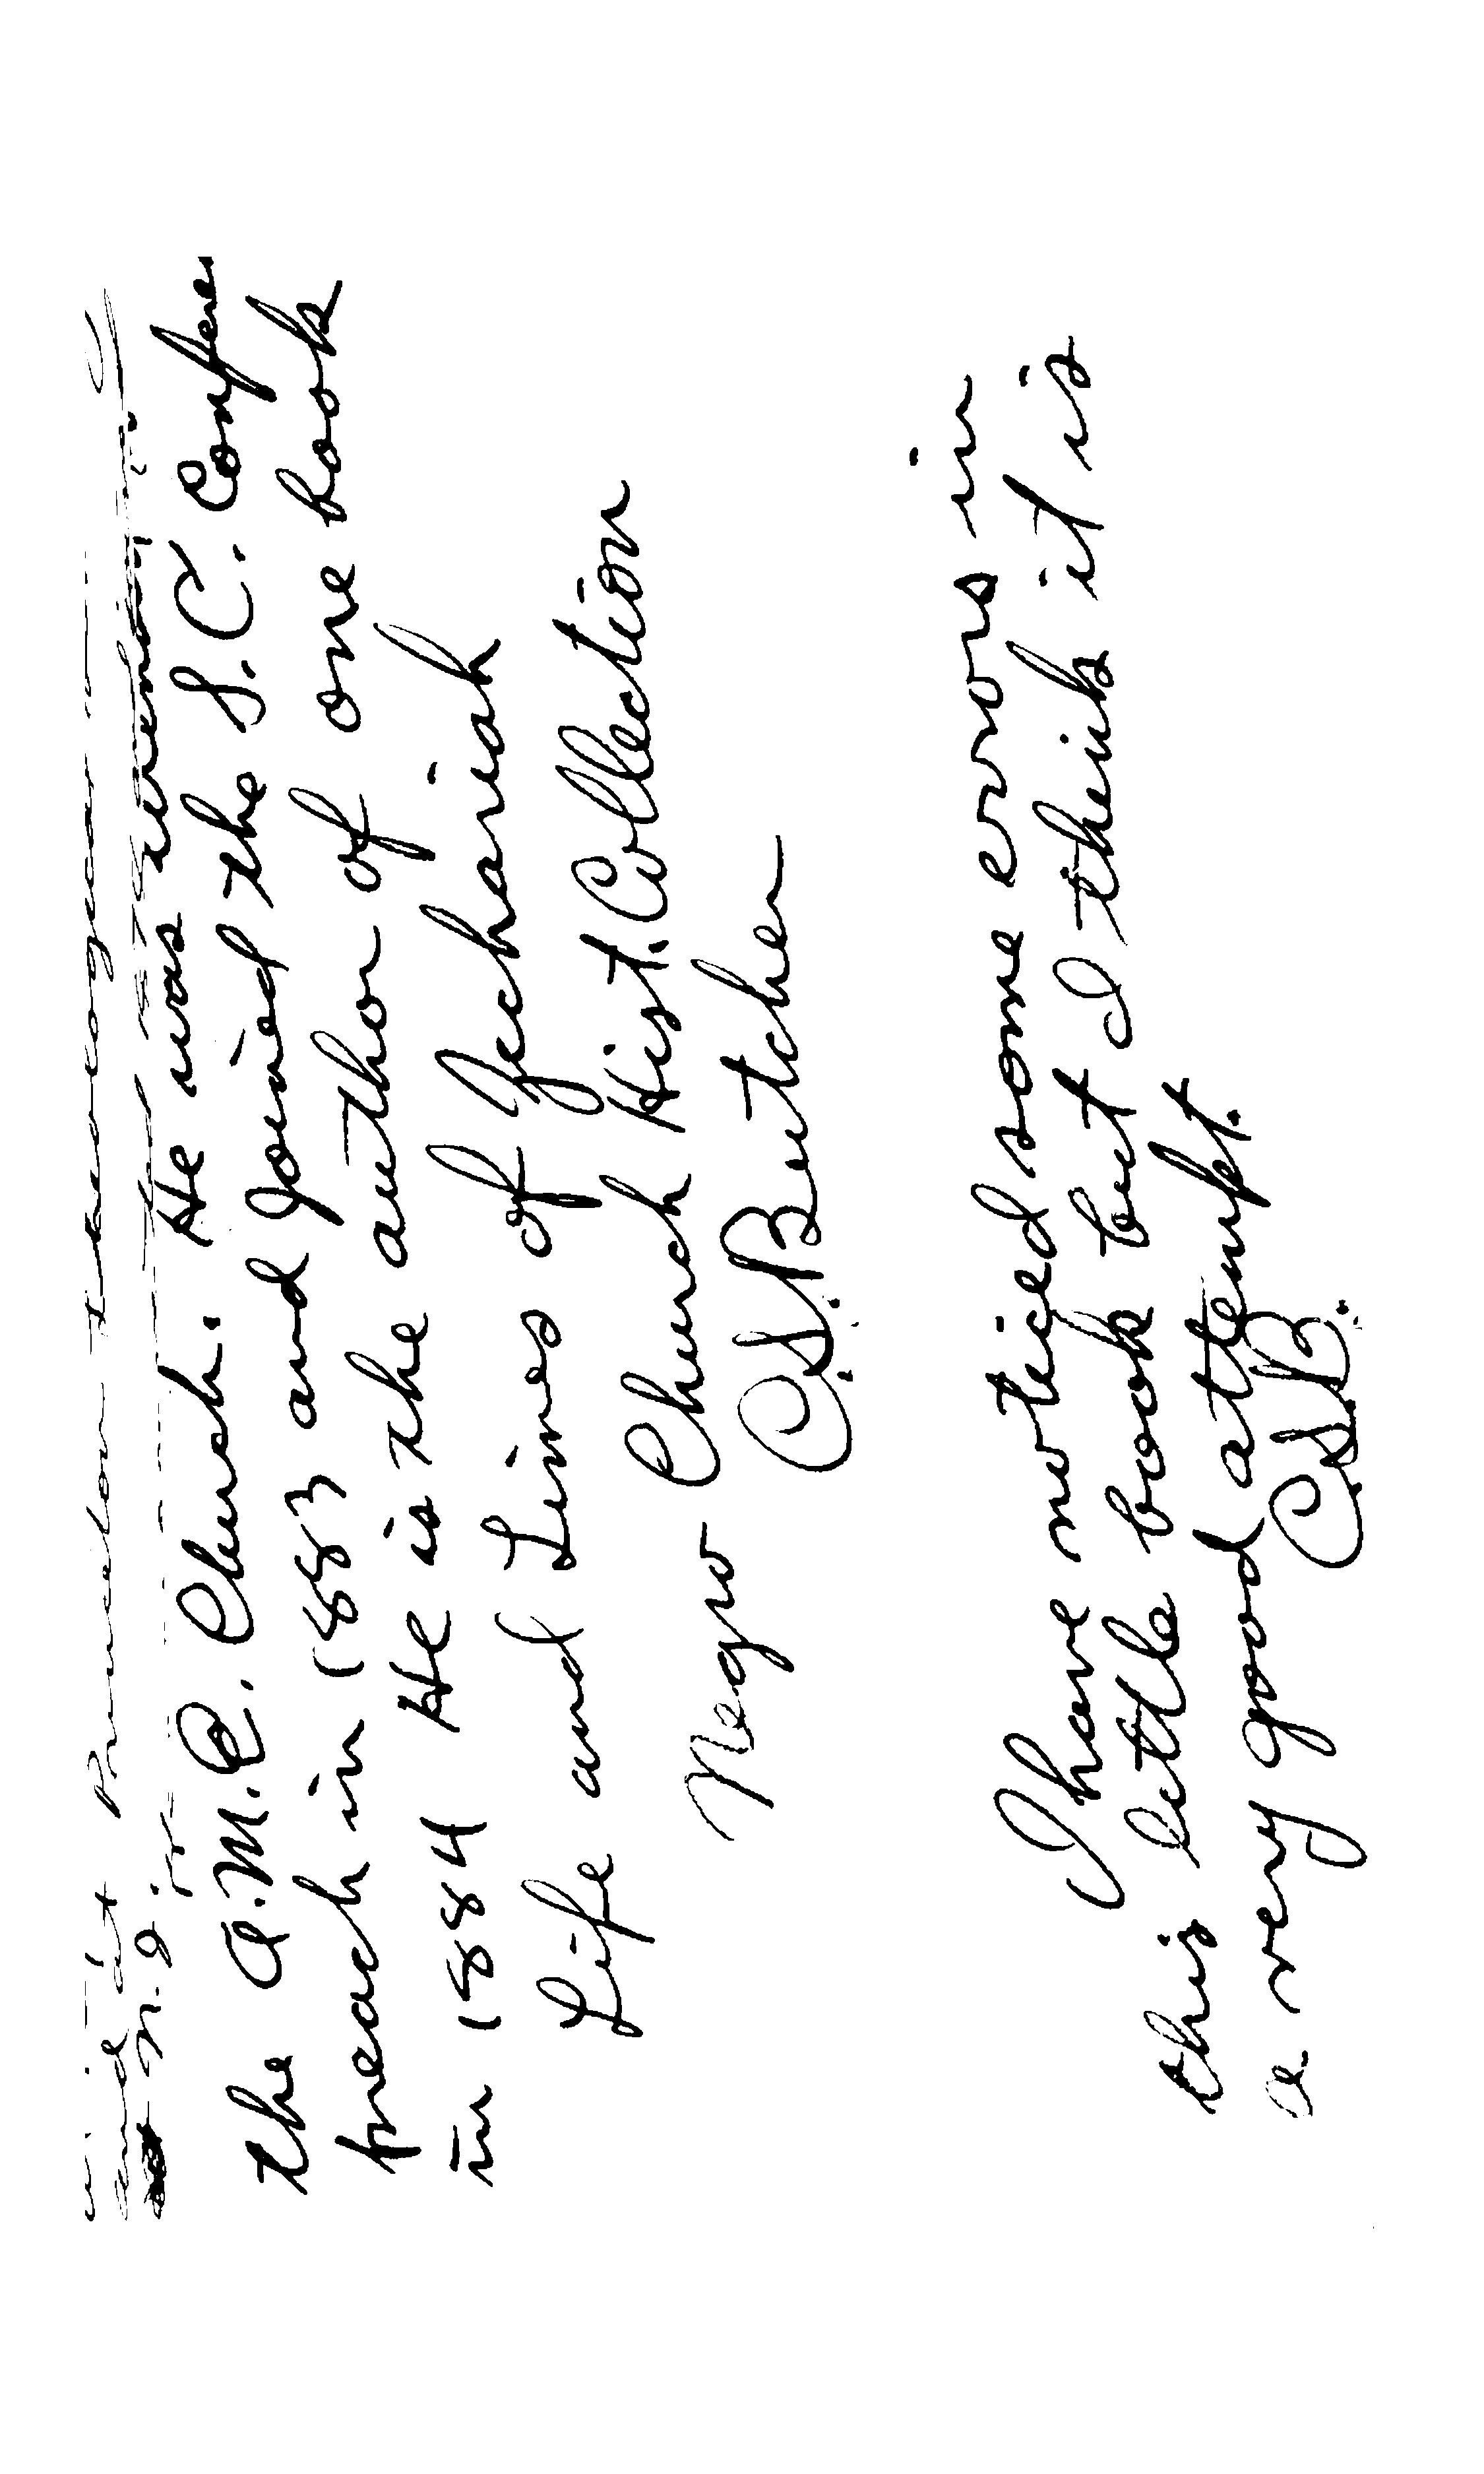 and at Princeton Theological
N.J.
the A.M.E. Church. He was
preach in 1883 and joined the S.C. Confer
in 1884 He is the author of one book
Life and Lines of Zechariah
Negro Church Hist. Collection
C.S. Butcher
I have noticed some errors in
this little book but I think it is
a very good attempt.
C.S.B.